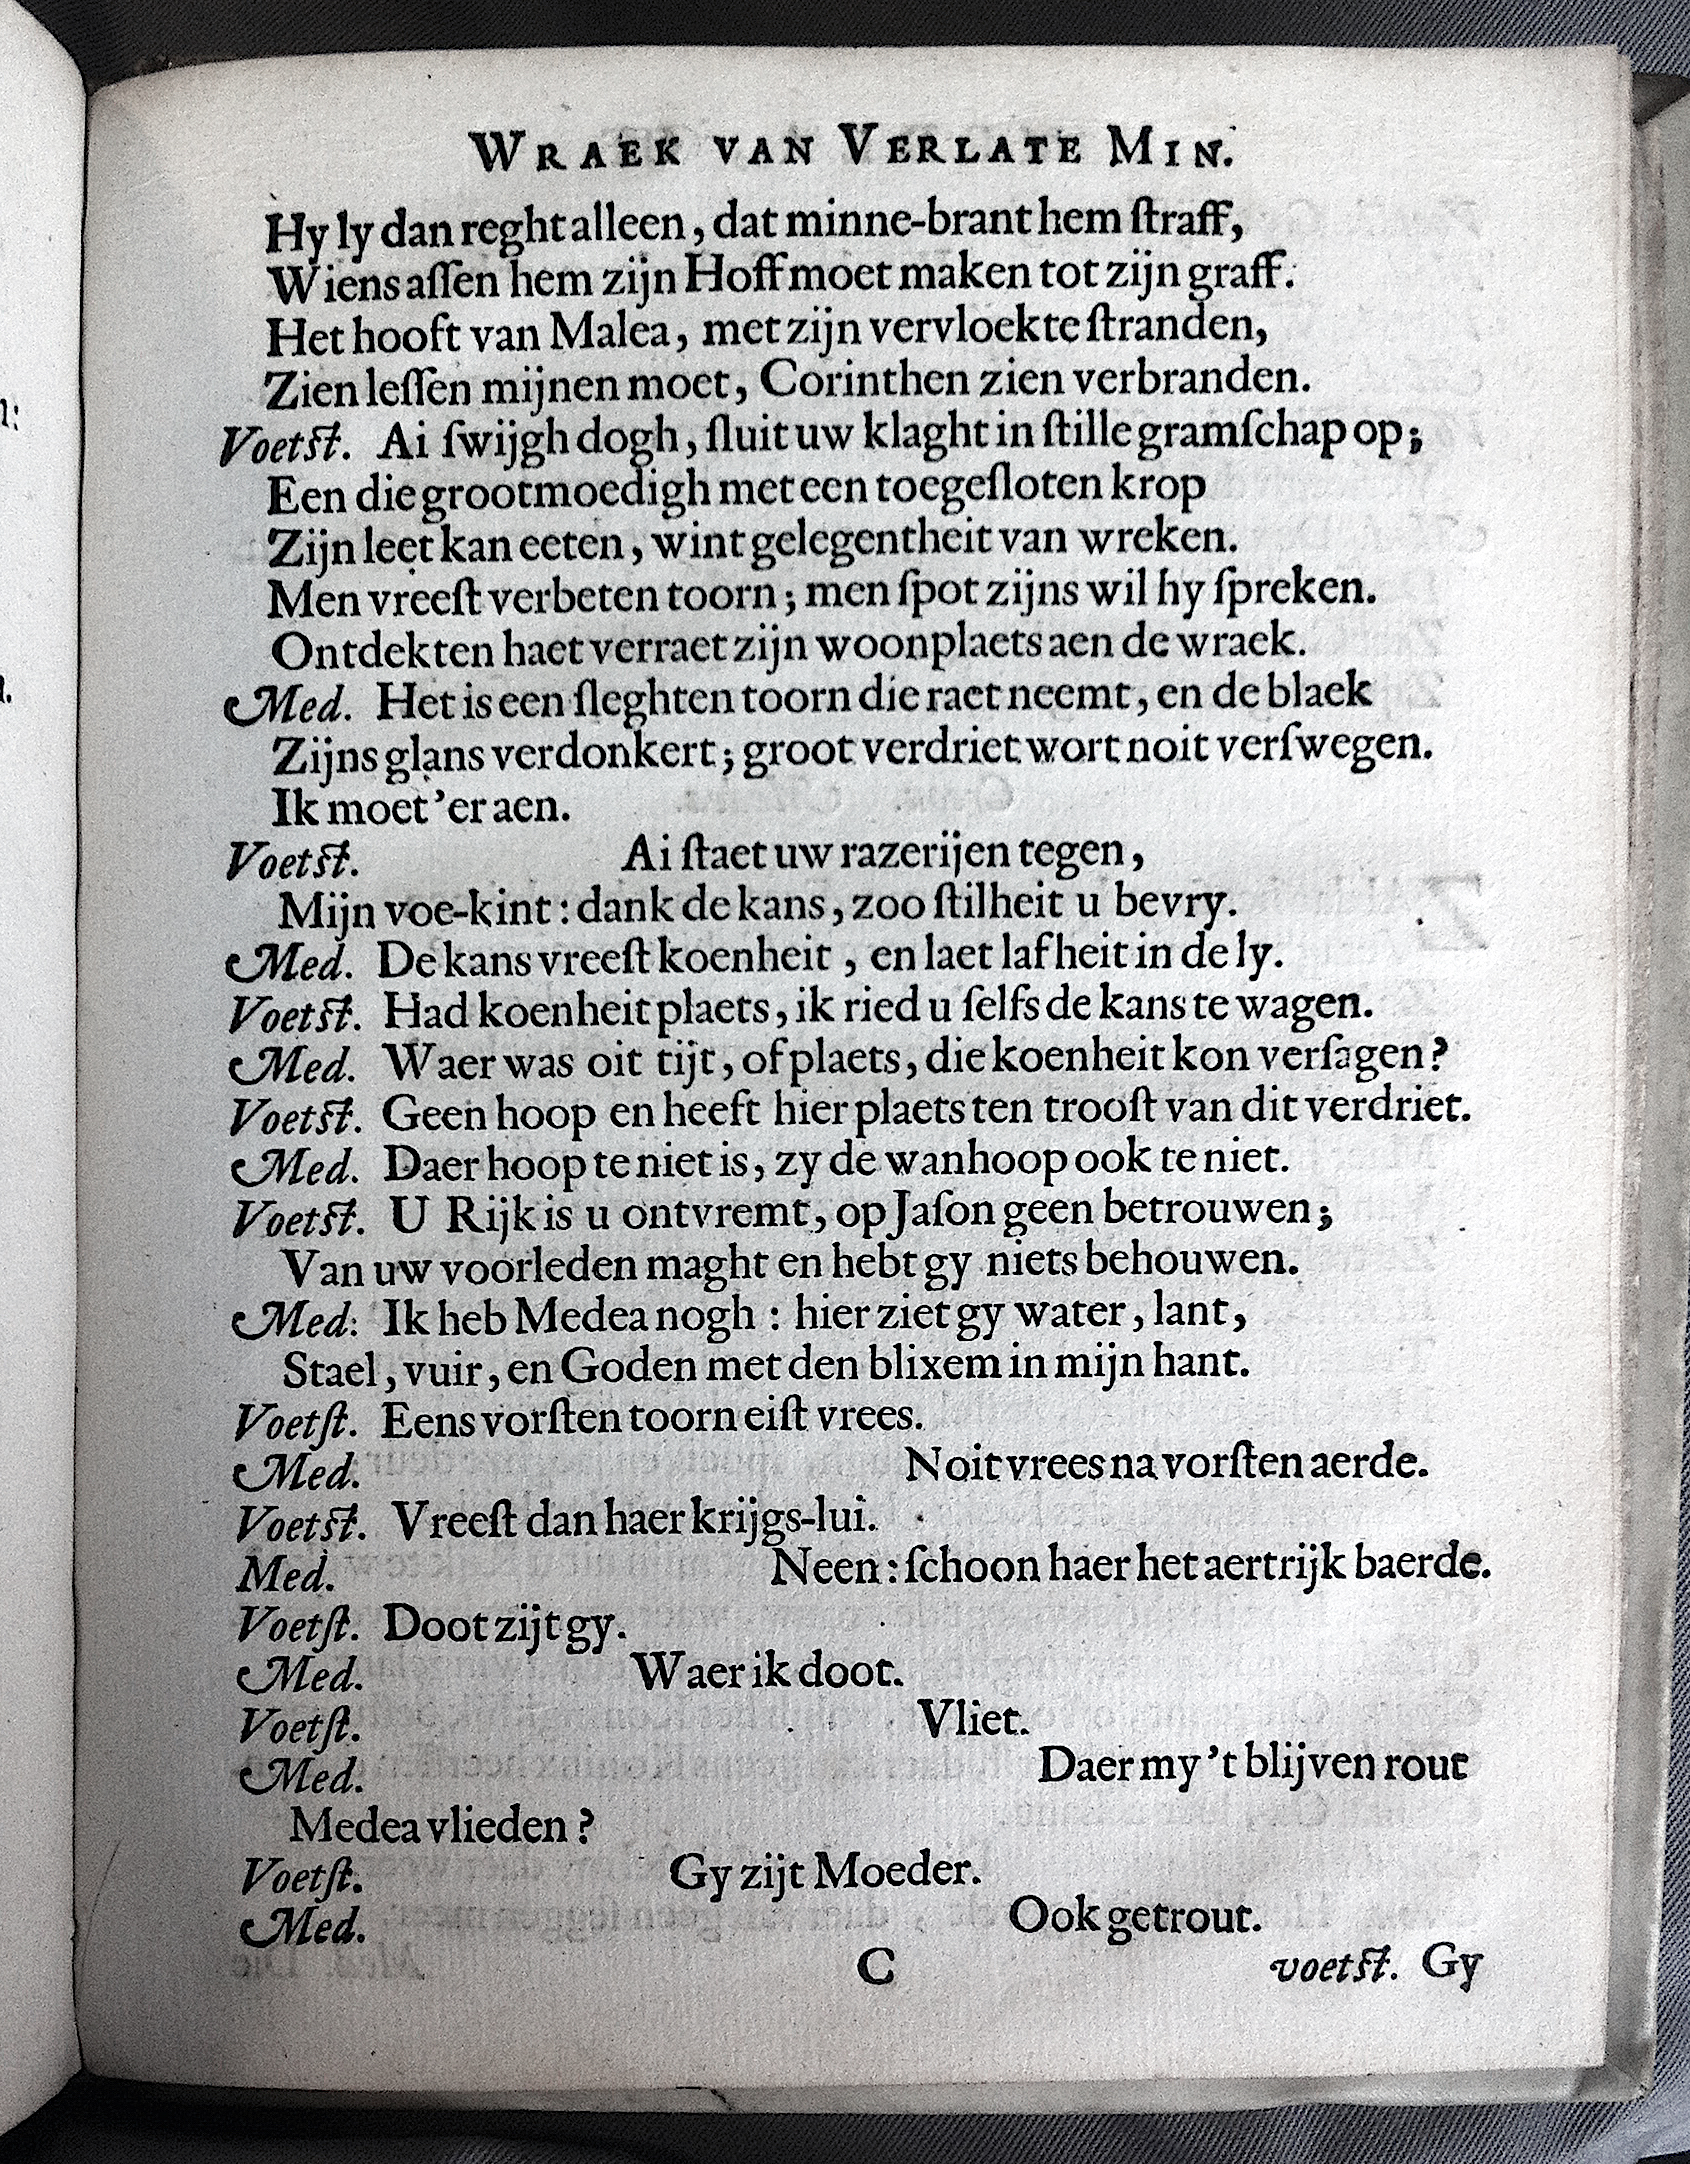 WRAEK VAN VERLATE MIN.
Hy ly dan reght alleen, dat minne-brant hem ſtraff,
Wiens aſſen hem zijn Hoff moet maken tot zijn graff.
Het hooft van Malea, met zijn vervloekte ſtranden,
Zien leſſen mijnen moet, Corinthen zien verbranden.
Voetſt. Ai ſwijgh dogh, ſluit uw klaght in ſtille gramſchap op;
Een die grootmoedigh met een toegeſloten krop
Zijn leet kan eeten, wint gelegentheit van wreken.
Men vreeſt verbeten toorn; men ſpot zijns wil hy ſpreken.
Ontdekten haet verraet zijn woonplaets aen de wraek.
Med. Het is een ſleghten toorn die raet neemt, en de blaek
Zijns glans verdonkert; groot verdriet wort noit verſwegen.
Ik moet 'er aen.
Voetſt. Ai ſtaet uw razerijen tegen,
Mijn voe-kint: dank de kans, zoo ſtilheit u bevry.
Med. De kans vreeſt koenheit, en laet lafheit in de ly.
Voetſt. Had koenheit plaets, ik ried u ſelfs de kans te wagen.
Med. Waer was oit tijt, of plaets, die koenheit kon verſagen?
Voetſt. Geen hoop en heeft hier plaets ten trooſt van dit verdriet.
Med. Daer hoop te niet is, zy de wanhoop ook te niet.
Voetſt. U Rijk is u ontvremt, op Jaſon geen betrouwen;
Van uw voorleden maght en hebt gy niets behouwen.
Med: Ik heb Medea nogh: hier ziet gy water, lant,
Stael, vuir, en Goden met den blixem in mijn hant.
Voetſt. Eens vorſten toorn eiſt vrees.
Med. Noit vrees na vorſten aerde.
Voetſt. Vreeſt dan haer krijgs-lui.
Med. Neen: ſchoon haer het aertrijk baerde.
Voetſt. Doot zijt gy.
Med. Waer ik doot.
Voetſt. Vliet.
Med. Daer my 't blijven rout
Medea vlieden?
Voetſt. Gy zijt Moeder.
Med. Ook getrout.
C voetſt. Gy